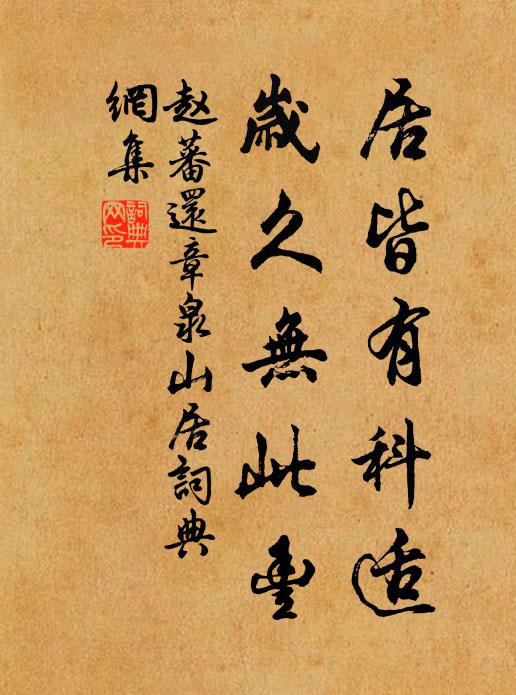 居皆有科适
歲久無此豐
赵蕃還章泉山居詞典
網集
詞典網印